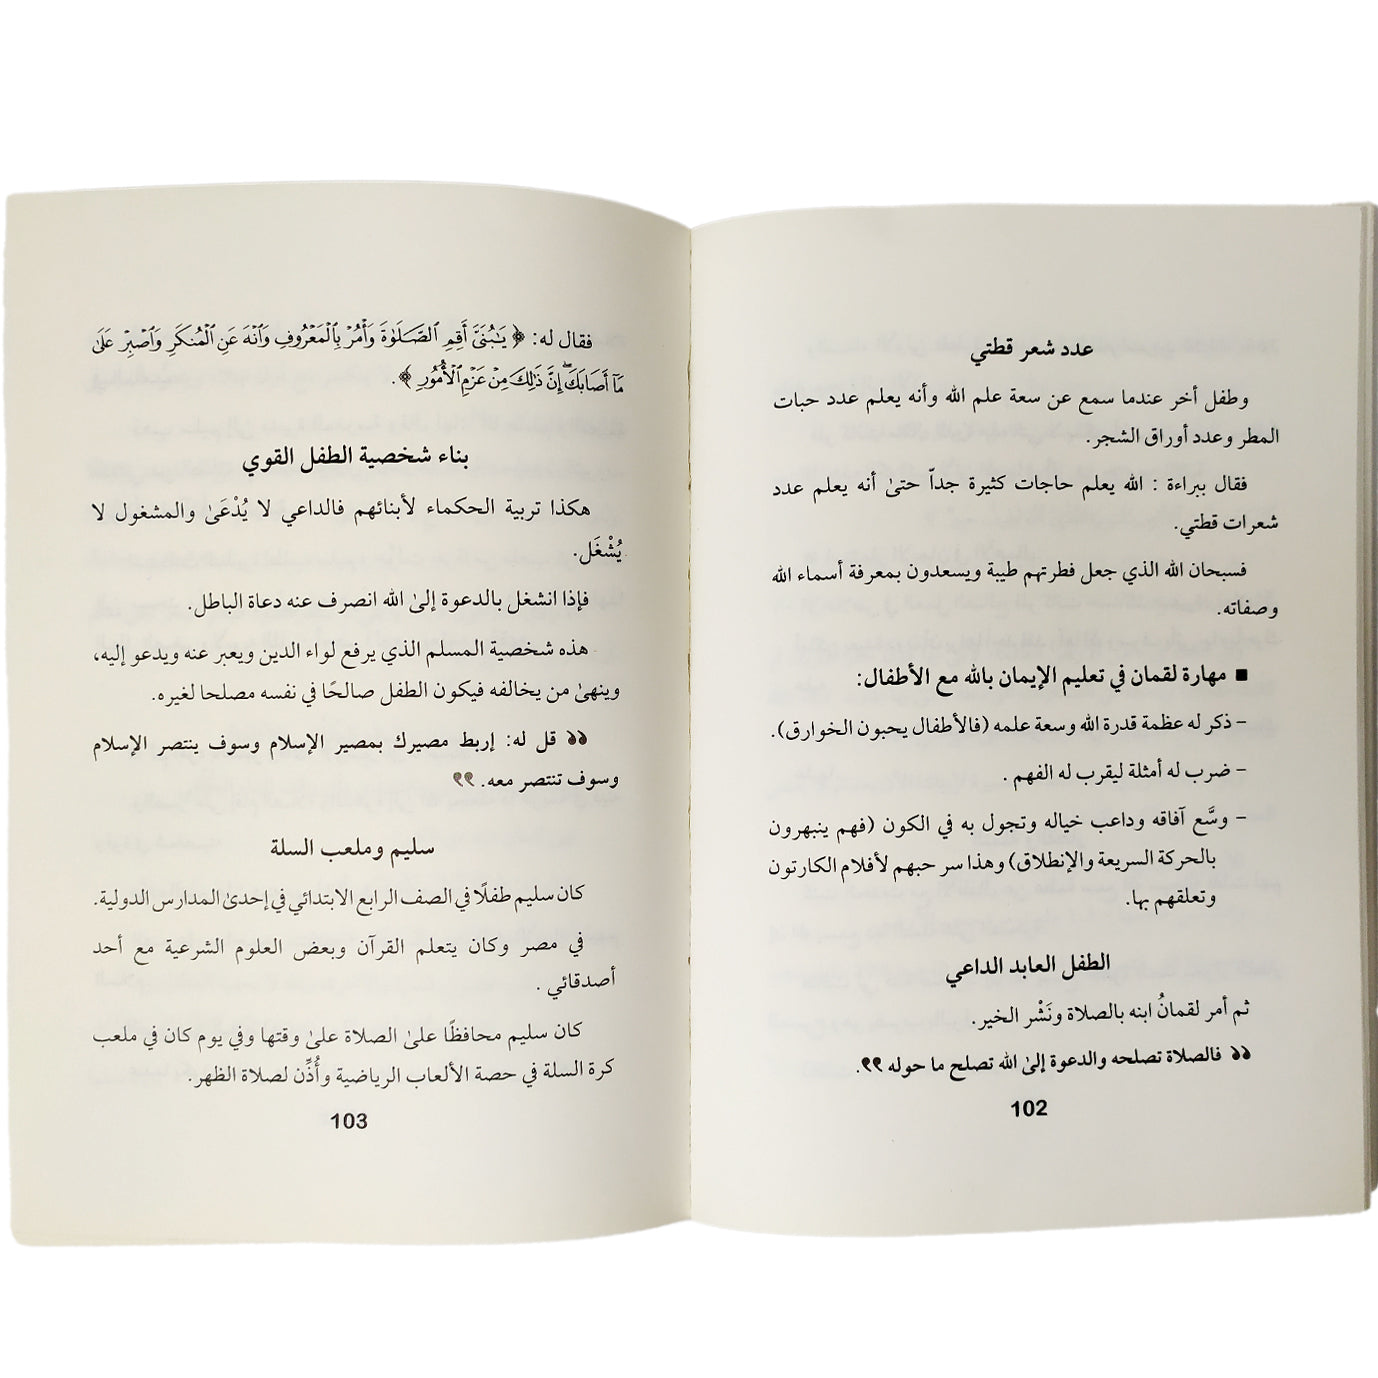 عدد شعر قطتي
وطفل أخر عندما سمع عن سعة علم الله وأنه يعلم عدد حبات
المطر وعدد أوراق الشجر.
فقال ببراءة : الله يعلم حاجات كثيرة جداّ حتىٰ أنه يعلم عدد
شعرات قطتي.
فسبحان الله الذي جعل فطرتهم طيبة ويسعدون بمعرفة أسماء الله
وصفاته.
■ مهارة لقمان في تعليم الإيمان بالله مع الأطفال:
– ذكر له عظمة قدرة الله وسعة علمه (فالأطفال يحبون الخوارق).
– ضرب له أمثلة ليقرب له الفهم .
– وسَّع آفاقه وداعب خياله وتجول به في الكون (فهم ينبهرون
بالحركة السريعة والإنطلاق) وهذا سر حبهم لأفلام الكارتون
وتعلقهم بها.
الطفل العابد الداعي
ثم أمر لقمانُ ابنه بالصلاة ونَشْر الخير.
❝ فالصلاة تصلحه والدعوة إلىٰ الله تصلح ما حوله ❞.
102
فقال له: ﴿ يَٰبُنَيَّ أَقِمِ ٱلصَّلَوٰةَ وَأۡمُرۡ بِٱلۡمَعۡرُوفِ وَٱنۡهَ عَنِ ٱلۡمُنكَرِ وَٱصۡبِرۡ عَلَىٰ
مَآ أَصَابَكَۖ إِنَّ ذَٰلِكَ مِنۡ عَزۡمِ ٱلۡأُمُورِ ﴾.
بناء شخصية الطفل القوي
هكذا تربية الحكماء لأبنائهم فالداعي لا يُدْعَىٰ والمشغول لا
يُشْغَل.
فإذا انشغل بالدعوة إلىٰ الله انصرف عنه دعاة الباطل.
هذه شخصية المسلم الذي يرفع لواء الدين ويعبر عنه ويدعو إليه،
وينهىٰ من يخالفه فيكون الطفل صالحًا في نفسه مصلحا لغيره.
❝ قل له: إربط مصيرك بمصير الإسلام وسوف ينتصر الإسلام
وسوف تنتصر معه. ❞
سليم وملعب السلة
كان سليم طفلًا في الصف الرابع الابتدائي في إحدىٰ المدارس الدولية.
في مصر وكان يتعلم القرآن وبعض العلوم الشرعية مع أحد
أصدقائي .
كان سليم محافظًا علىٰ الصلاة علىٰ وقتها وفي يوم كان في ملعب
كرة السلة في حصة الألعاب الرياضية وأُذِّن لصلاة الظهر.
103